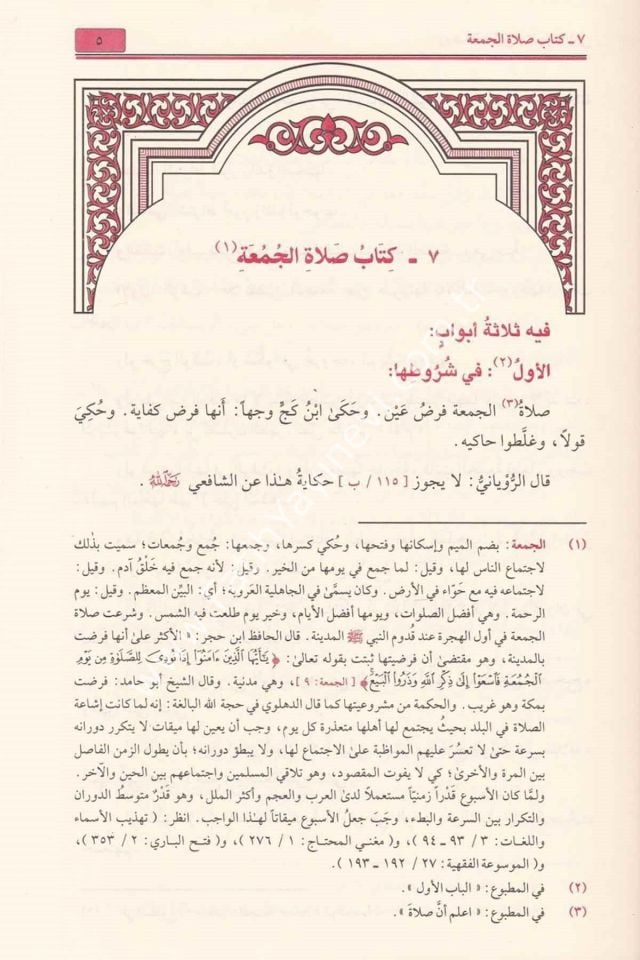 ٧ ـ كتاب صلاة الجمعة
٥
٧ ـ كِتَابُ صَلاةِ الجُمُعَةِ(١)
فيه ثلاثةُ أبوابٍ:
الأولُ(٢): في شُروطها:
صلاةُ(٣) الجمعة فرضُ عَيْن. وحَكَىٰ ابْنُ كَجٍّ وجهاً: أنها فرض كفاية. وحُكِيَ
قولاً، وغلَّطوا حاكيه.
قال الرُّوْيانيُّ: لا يجوز [١١٥ / ب] حكايةُ هـٰذا عن الشافعي رَحِمَهُ اللهُ.
(١) الجمعة: بضم الميم وإسكانها وفتحها، وحُكي كسرها، وجمعها: جُمع وجُمعات؛ سميت بذلك
لاجتماع الناس لها، وقيل: لما جمع في يومها من الخير. وقيل: لأنه جمع فيه خَلْقُ آدم. وقيل:
لاجتماعه فيه مع حَوَّاء في الأرض. وكان يسمىٰ في الجاهلية العَرُوبة؛ أي: البيِّن المعظم. وقيل: يوم
الرحمة. وهي أفضل الصلوات، ويومها أفضل الأيام، وخير يوم طلعت فيه الشمس. وشرعت صلاة
الجمعة في أول الهجرة عند قُدوم النبي ﷺ المدينة. قال الحافظ ابن حجر: « الأكثر علىٰ أنها فرضت
بالمدينة، وهو مقتضىٰ أن فرضيتها ثبتت بقوله تعالىٰ: ﴿ يَٰٓأَيُّهَا ٱلَّذِينَ ءَامَنُوٓاْ إِذَا نُودِىَ لِلصَّلَوٰةِ مِن يَوْمِ
ٱلْجُمُعَةِ فَٱسْعَوْاْ إِلَىٰ ذِكْرِ ٱللَّهِ وَذَرُواْ ٱلْبَيْعَ ﴾ [الجمعة: ٩]، وهي مدنية. وقال الشيخ أبو حامد: فرضت
بمكة وهو غريب. والحكمة من مشروعيتها كما قال الدهلوي في حجة الله البالغة: إنه لما كانت إشاعة
الصلاة في البلد بحيثُ يجتمع لها أهلها متعذرة كل يوم، وجب أن يعين لها ميقات لا يتكرر دورانه
بسرعة حتىٰ لا تعسُرَ عليهم المواظبة علىٰ الاجتماع لها، ولا يبطؤ دورانه؛ بأن يطول الزمن الفاصل
بين المرة والأخرىٰ؛ كي لا يفوت المقصود، وهو تلاقي المسلمين واجتماعهم بين الحين والآخر.
ولمَّا كان الأسبوع قَدْراً زمنيّاً مستعملاً لدىٰ العرب والعجم وأكثر الملل، وهو قَدْرٌ متوسطُ الدوران
والتكرار بين السرعة والبطء، وجَبَ جعلُ الأسبوع ميقاتاً لهـٰذا الواجب. انظر: ( تهذيب الأسماء
واللغات: ٣ / ٩٣ ـ ٩٤ )، و( مغني المحتاج: ١ / ٢٧٦ )، و( فتح الباري: ٢ / ٣٥٣ )،
و( الموسوعة الفقهية: ٢٧ / ١٩٢ ـ ١٩٣ ).
(٢) في المطبوع: « الباب الأول ».
(٣) في المطبوع: « اعلم أنَّ صلاة ».